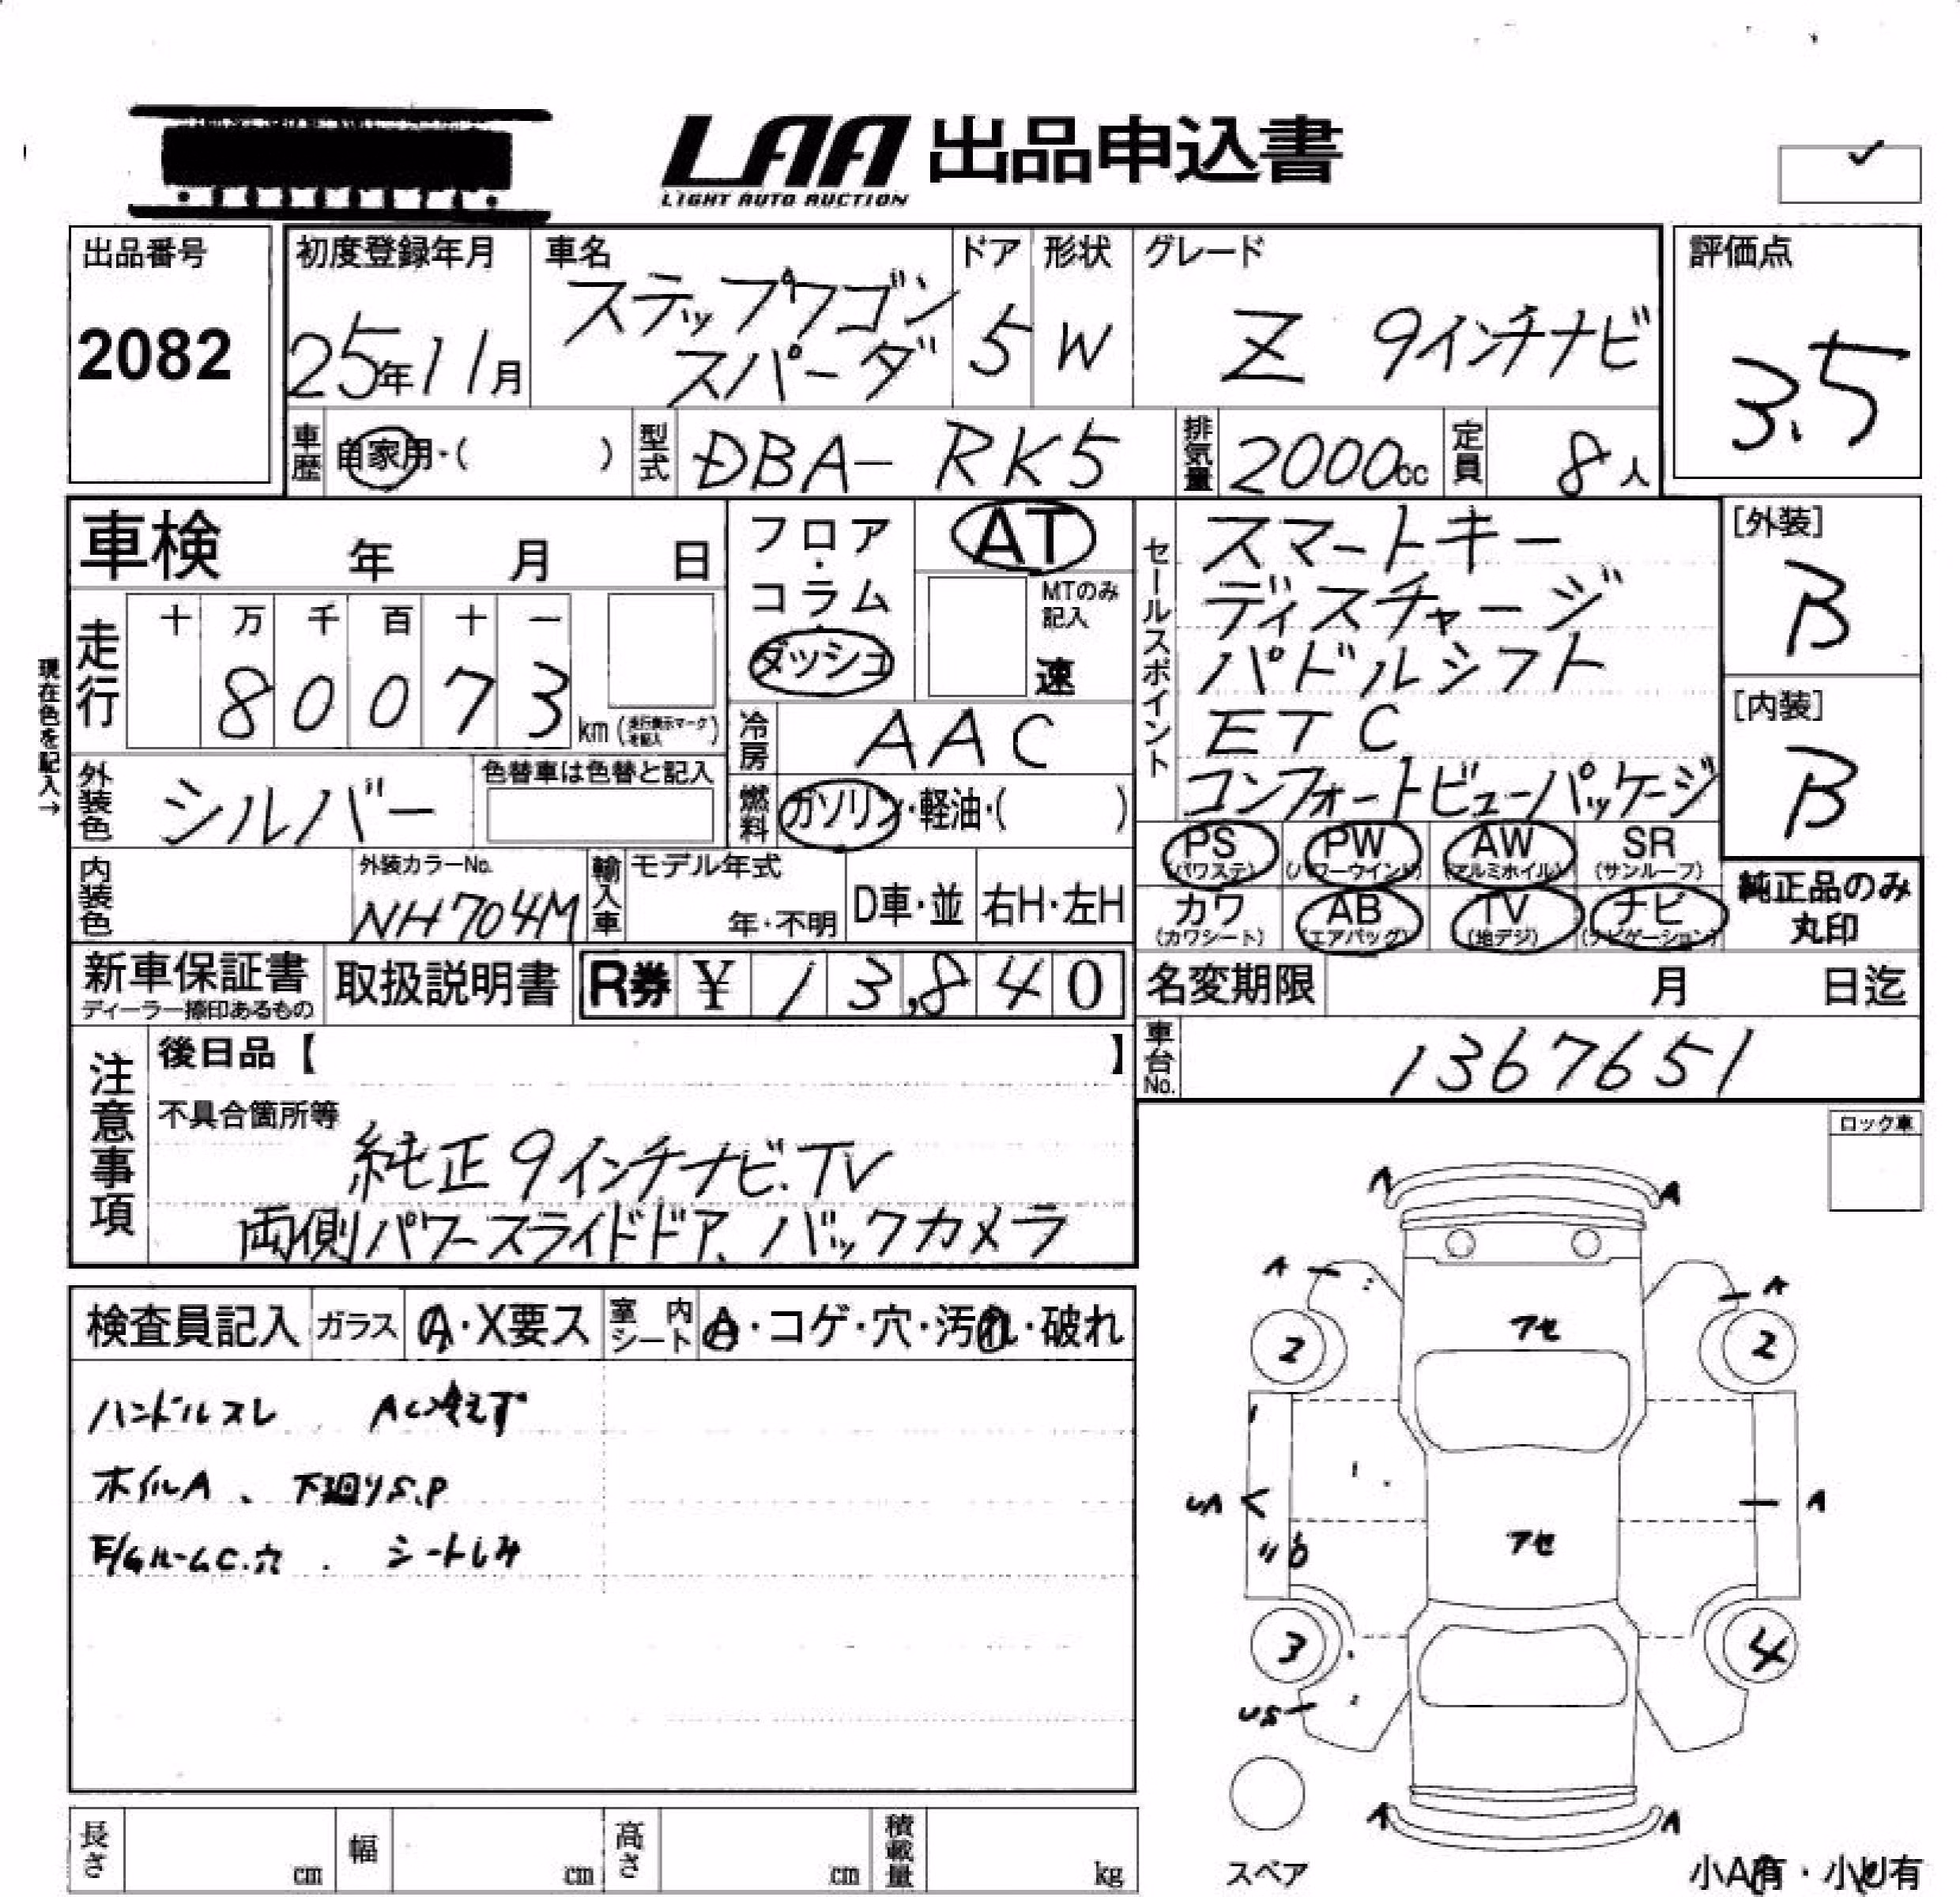 LAA 出品申込書
LIGHT AUTO AUCTION
出品番号
2082
初度登録年月
25年11月
車名
ステップワゴン
スパーダ
ドア
5
形状
W
グレード
Z 9インチナビ
評価点
3.5
車歴
自家用・( )
型式
DBA- RK5
排気量
2000cc
定員
8人
車検 年 月 日
フロア・
コラム・
ダッシュ
AT
MTのみ
記入
速
セールスポイント
スマートキー
ディスチャージ
パドルシフト
ETC
コンフォートビューパッケージ
[外装]
B
[内装]
B
現在色を記入→
走行
十 万 千 百 十 一
8 0 0 7 3 km (走行表示マークを記入)
冷房
AAC
外装色
シルバー
色替車は色替と記入
燃料
ガソリン・軽油・( )
PS PW AW SR
(パワステ) (パワーウインド) (アルミホイル) (サンルーフ)
カワ AB TV ナビ
(カワシート) (エアバッグ) (地デジ) (ナビゲーション)
純正品のみ
丸印
内装色
外装カラーNo.
NH704M
輸入車
モデル年式
年・不明
D車・並
右H・左H
新車保証書
ディーラー捺印あるもの
取扱説明書
R券 ¥ 13,840
名変期限 月 日迄
車台No.
1367651
注意事項
後日品【 】
不具合箇所等
純正9インチナビ.TV
両側パワースライドドア、バックカメラ
ロック車
検査員記入
ガラス
A・X要ス
室内シート
A・コゲ・穴・汚れ・破れ
ハンドルスレ、 AC冷えず
ホイルA、 下廻りS.P
E/GルームC.穴、 シートしみ
A A
A A
アセ
2 2
UA A
アセ
3 4
US
A A
スペア
小A有・小U有
長さ cm
幅 cm
高さ cm
積載量 kg